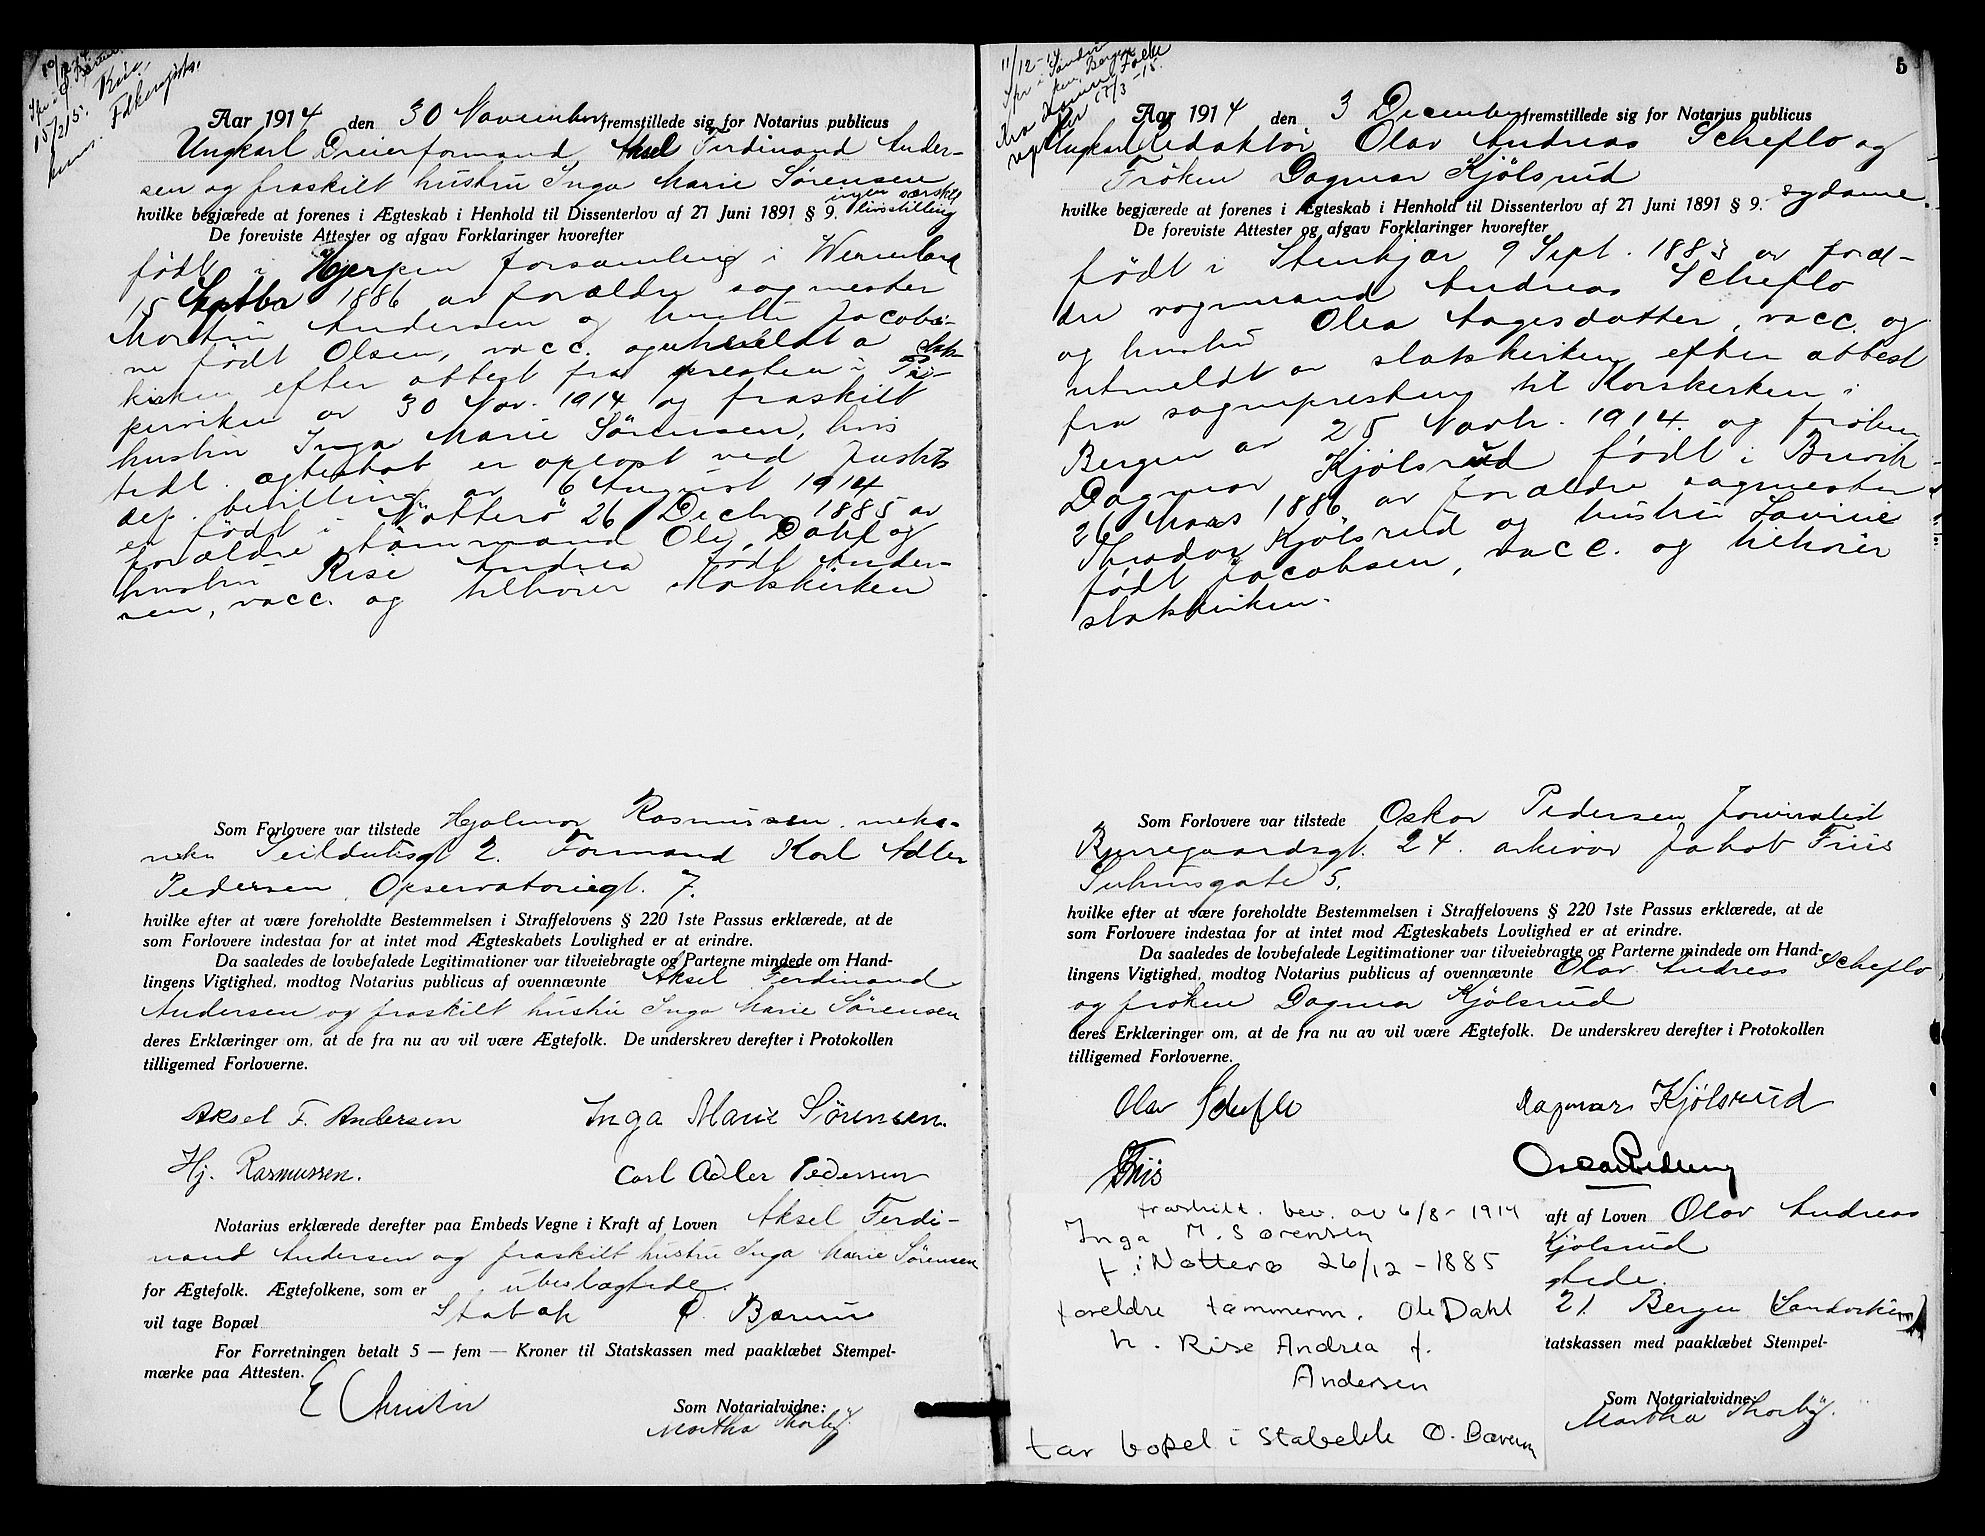 Aar 1914 den 30 November fremstillede sig for Notarius publicus
Ungkarl Dreierformand Aksel Ferdinand Ander-
sen og fraskilt hustru Inga Marie Sørensen
ingen særskilt
hvilke begjærede at forenes i Ægteskab i Henhold til Dissenterlov af 27 Juni 1891 § 9. livsstilling
De foreviste Attester og afgav Forklaringer hvorefter
født i Hjerpen forsamling i Wermland
15 Septbr 1886 av forældre sagmester
Martin Andersen og hustru Jacobi-
ne født Olsen, vacc. og utmeldt a stats
kirken efter attest fra presten i Pi-
perviken av 30 Nov. 1914 og fraskilt
hustru Inga Marie Sørensen, hvis
tidl. ægteskab er opløst ved Justits
dep. bevilling av 6 August 1914
er født i Nøtterø 26 Decbr 1885 av
forældre tømmermand Ole Dahl og
hustru Rise Andrea født Ander-
sen, vacc. og tilhører statskirken
Som Forlovere var tilstede Hjalmar Rasmussen. meka-
niker Seildutsgt 2. Formand Karl Adler
Pedersen, Observatoriegt. 7.
hvilke efter at være foreholdte Bestemmelsen i Straffelovens § 220 1ste Passus erklærede, at de
som Forlovere indestaa for at intet mod Ægteskabets Lovlighed er at erindre.
Da saaledes de lovbefalede Legitimationer var tilveiebragte og Parterne mindede om Hand-
lingens Vigtighed, modtog Notarius publicus af ovennævnte Aksel Ferdinand
Andersen og fraskilt hustru Inga Marie Sørensen
deres Erklæringer om, at de fra nu av vil være Ægtefolk. De underskrev derefter i Protokollen
tilligemed Forloverne.
Aksel F. Andersen Inga Marie Sørensen.
Hj. Rasmussen. Carl Adler Pedersen
Notarius erklærede derefter paa Embeds Vegne i Kraft af Loven Aksel Ferdi-
nand Andersen og fraskilt hustru Inga Marie Sørensen
for Ægtefolk. Ægtefolkene, som er ubeslægtede.
vil tage Bopæl Stabæk Ø. Bærum
For Forretningen betalt 5 — fem — Kroner til Statskassen med paaklæbet Stempel-
mærke paa Attesten.
Som Notarialvidne:
Martha Thorby.
5
Aar 1914 den 3 December fremstillede sig for Notarius publicus
Ungkarl Redaktør Olav Andreas Scheflo og
Frøken Dagmar Kjølsrud
hvilke begjærede at forenes i Ægteskab i Henhold til Dissenterlov af 27 Juni 1891 § 9. sydame.
De foreviste Attester og afgav Forklaringer hvorefter
født i Stenkjær 9 Sept. 1883 av foræl-
dre vognmand Andreas Scheflo
og hustru Olea Aagesdatter, vacc. og
utmeldt av statskirken efter attest
fra sognepresten til Korskirken i
Bergen av 25 Novbr. 1914 og frøken
Dagmar Kjølsrud født i Brevik
26 Mars 1886 av forældre sagmester
Theodor Kjølsrud og hustru Lovise
født Jacobsen, vacc. og tilhører
statskirken.
Som Forlovere var tilstede Oskar Pedersen journalist
Bjerregaardsgt. 24. arkivar Jakob Friis
Suhmsgate 5.
hvilke efter at være foreholdte Bestemmelsen i Straffelovens § 220 1ste Passus erklærede, at de
som Forlovere indestaa for at intet mod Ægteskabets Lovlighed er at erindre.
Da saaledes de lovbefalede Legitimationer var tilveiebragte og Parterne mindede om Hand-
lingens Vigtighed, modtog Notarius publicus af ovennævnte Olav Andreas Scheflo
og frøken Dagmar Kjølsrud
deres Erklæringer om, at de fra nu av vil være Ægtefolk. De underskrev derefter i Protokollen
tilligemed Forloverne.
Olav Scheflo Dagmar Kjølsrud
Friis Oscar Pedersen
aft af Loven Olav Andreas
Kjølsrud
gtede.
21 Bergen Sandviken
tatskassen med paaklæbet Stempel-
Som Notarialvidne:
Martha Thorby.
fraskilt. bev. av 6/8 - 1914
Inga M. Sørensen
f. i Nøtterø 26/12 - 1885
foreldre tømmerm. Ole Dahl
h. Rise Andrea f.
Andersen
tar bopel i Stabekk Ø. Bærum